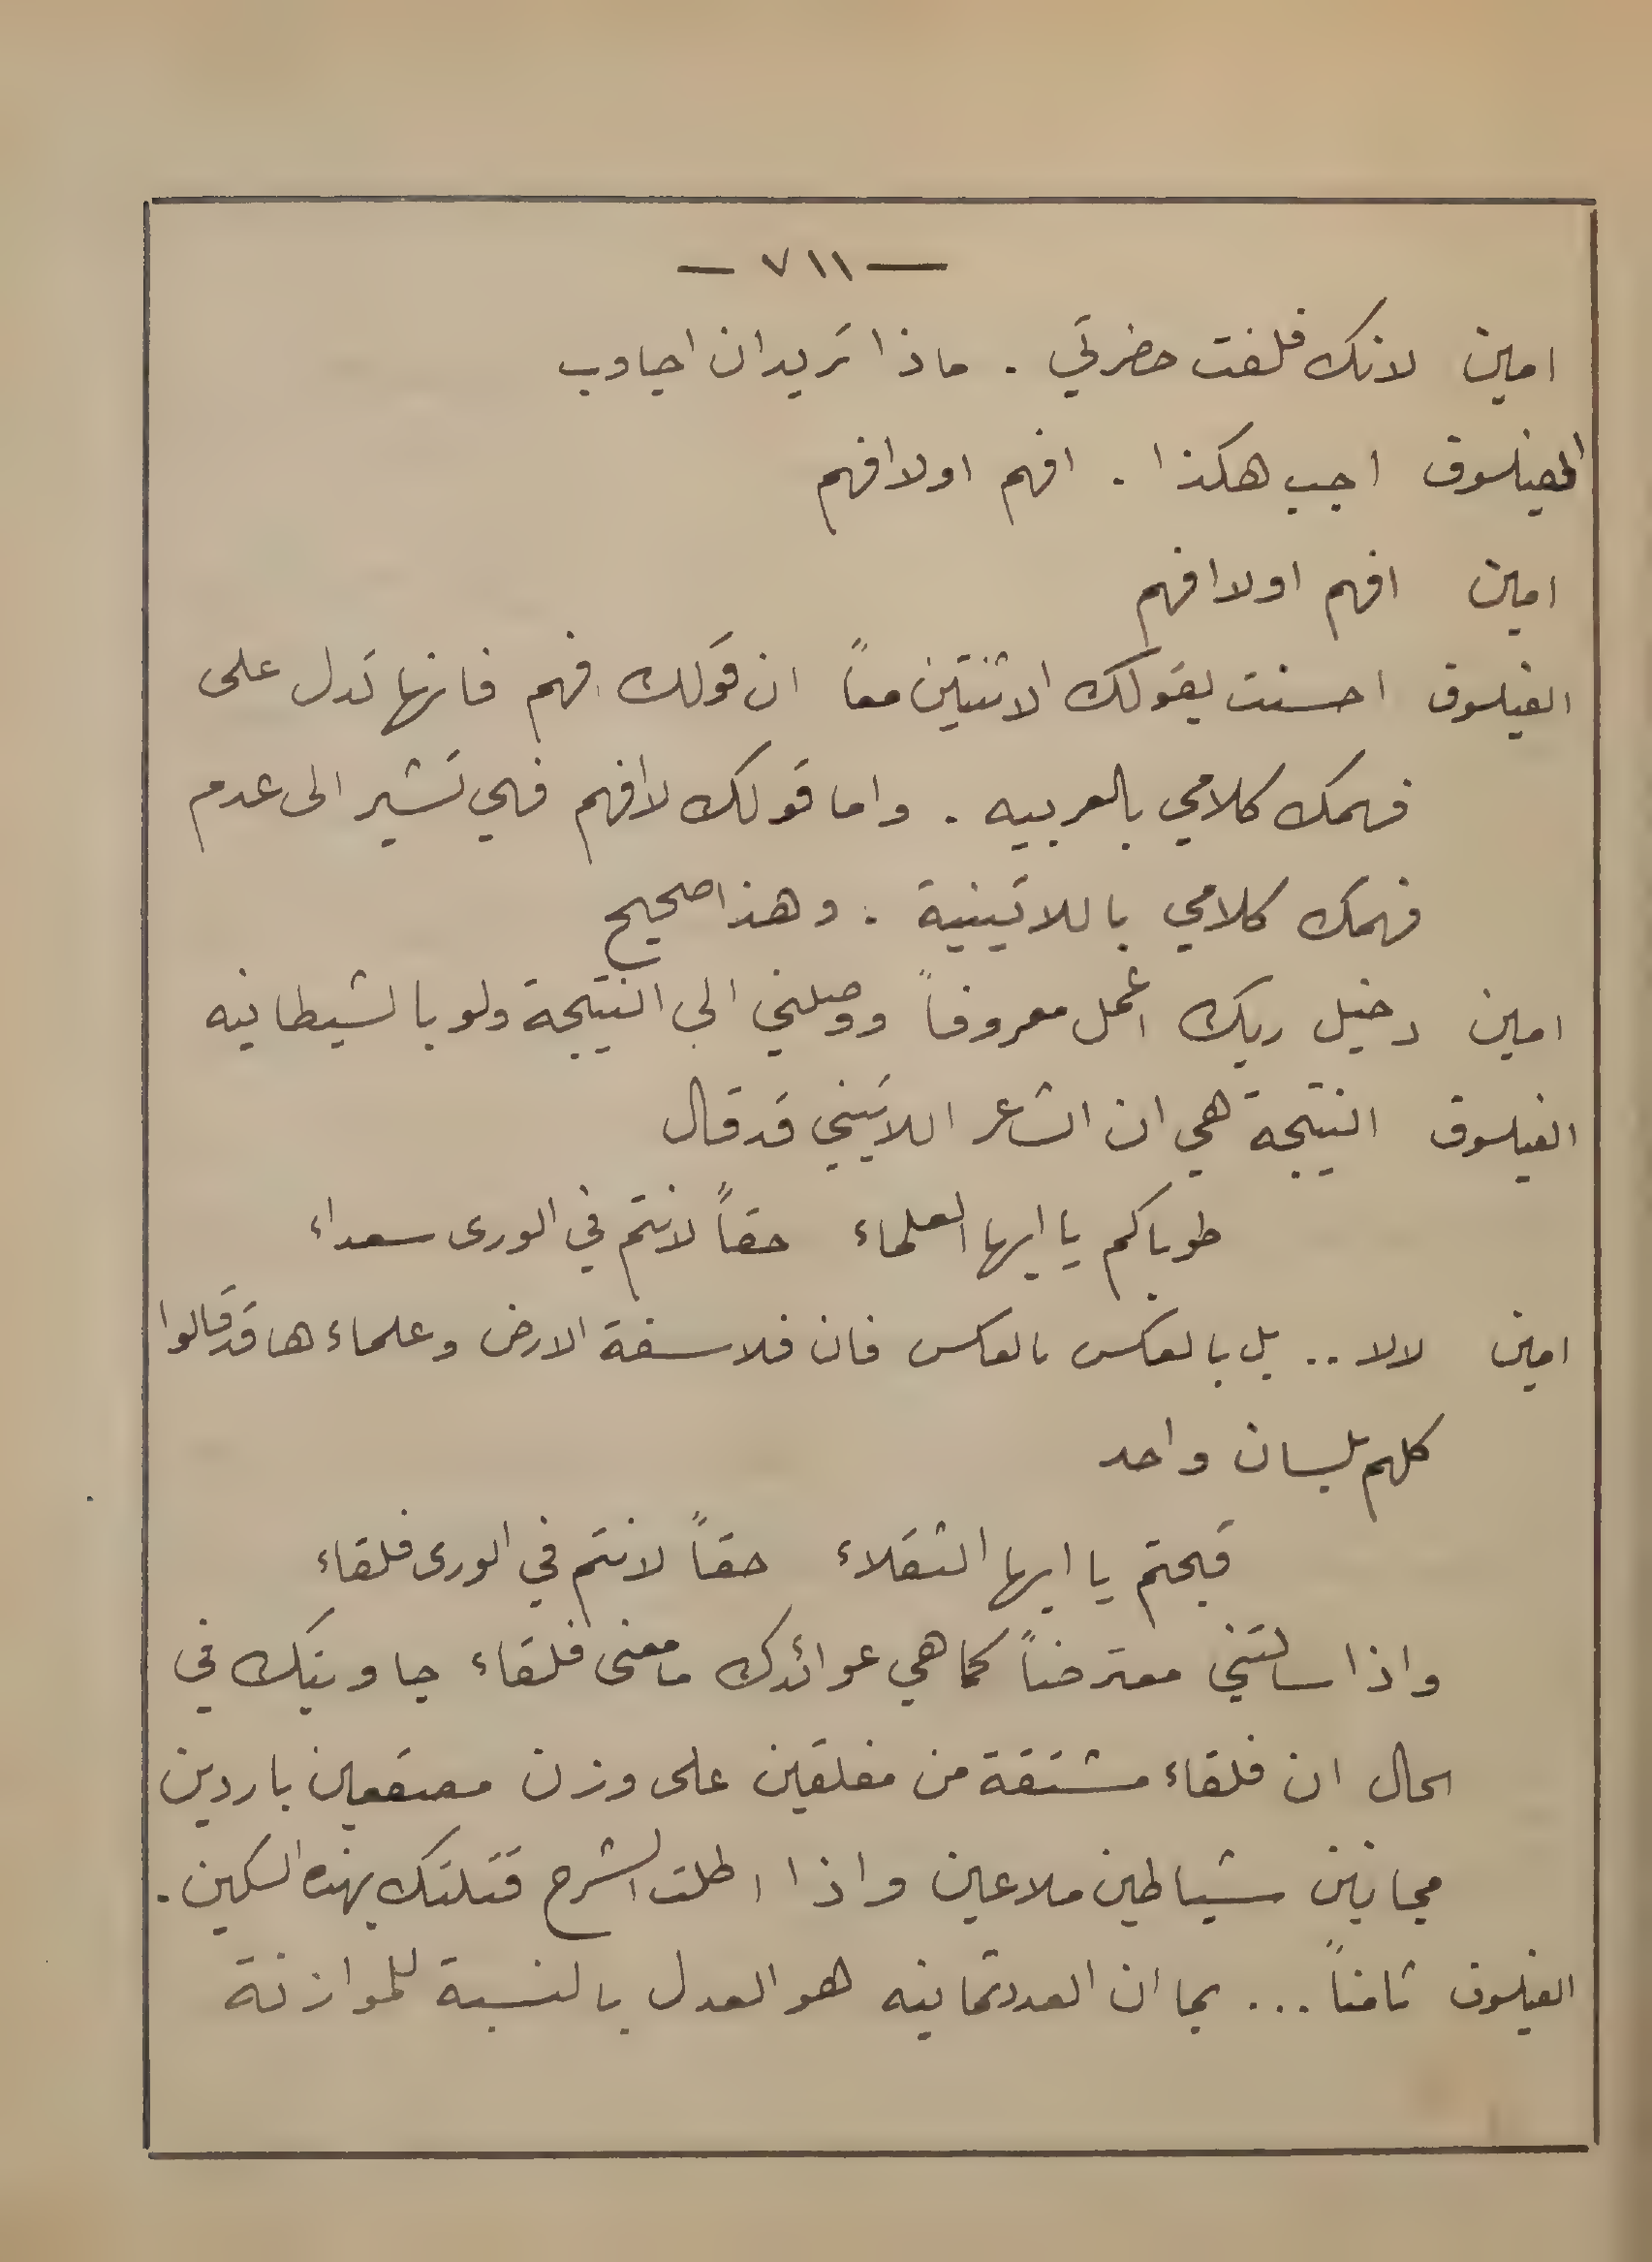 — ٧١١ —
امين لانك فلقت حضرتي . ماذا تريد ان اجاوب
الفيلسوف اجب هكذا . افهم اولا افهم
امين افهم اولا افهم
الفيلسوف احسنت بقولك الاثنتين معاً ان قولك افهم فانها تدل على
فهمك كلامي بالعربيه . واما قولك لا افهم فهي تشير الى عدم
فهمك كلامي باللاتينية . وهذا صحيح
امين دخيل ربك اعمل معروفاً ووصلني الى النتيجة ولو بالشيطانيه
الفيلسوف النتيجة هي ان الشاعر اللاتيني قد قال
طوباكم يا ايها العلماء حقاً لانتم في الورى سعداء
امين لالا .. بل بالعكس بالعكس فان فلاسفة الارض وعلماءها قد قالوا
كلهم بلسان واحد
قبحتم يا ايها الثقلاء حقاً لانتم في الورى فلقاء
واذا سالتني معترضاً كما هي عوائدك ما معنى فلقاء جاوبتك في
الحال ان فلقاء مشتقة من مفلقين على وزن مصقعين باردين
مجانين شياطين ملاعين واذا اطلت الشرح قتلتك بهذه السكين .
الفيلسوف ثامناً ... بما ان العدد ثمانيه هو العدل بالنسبة للموازنة